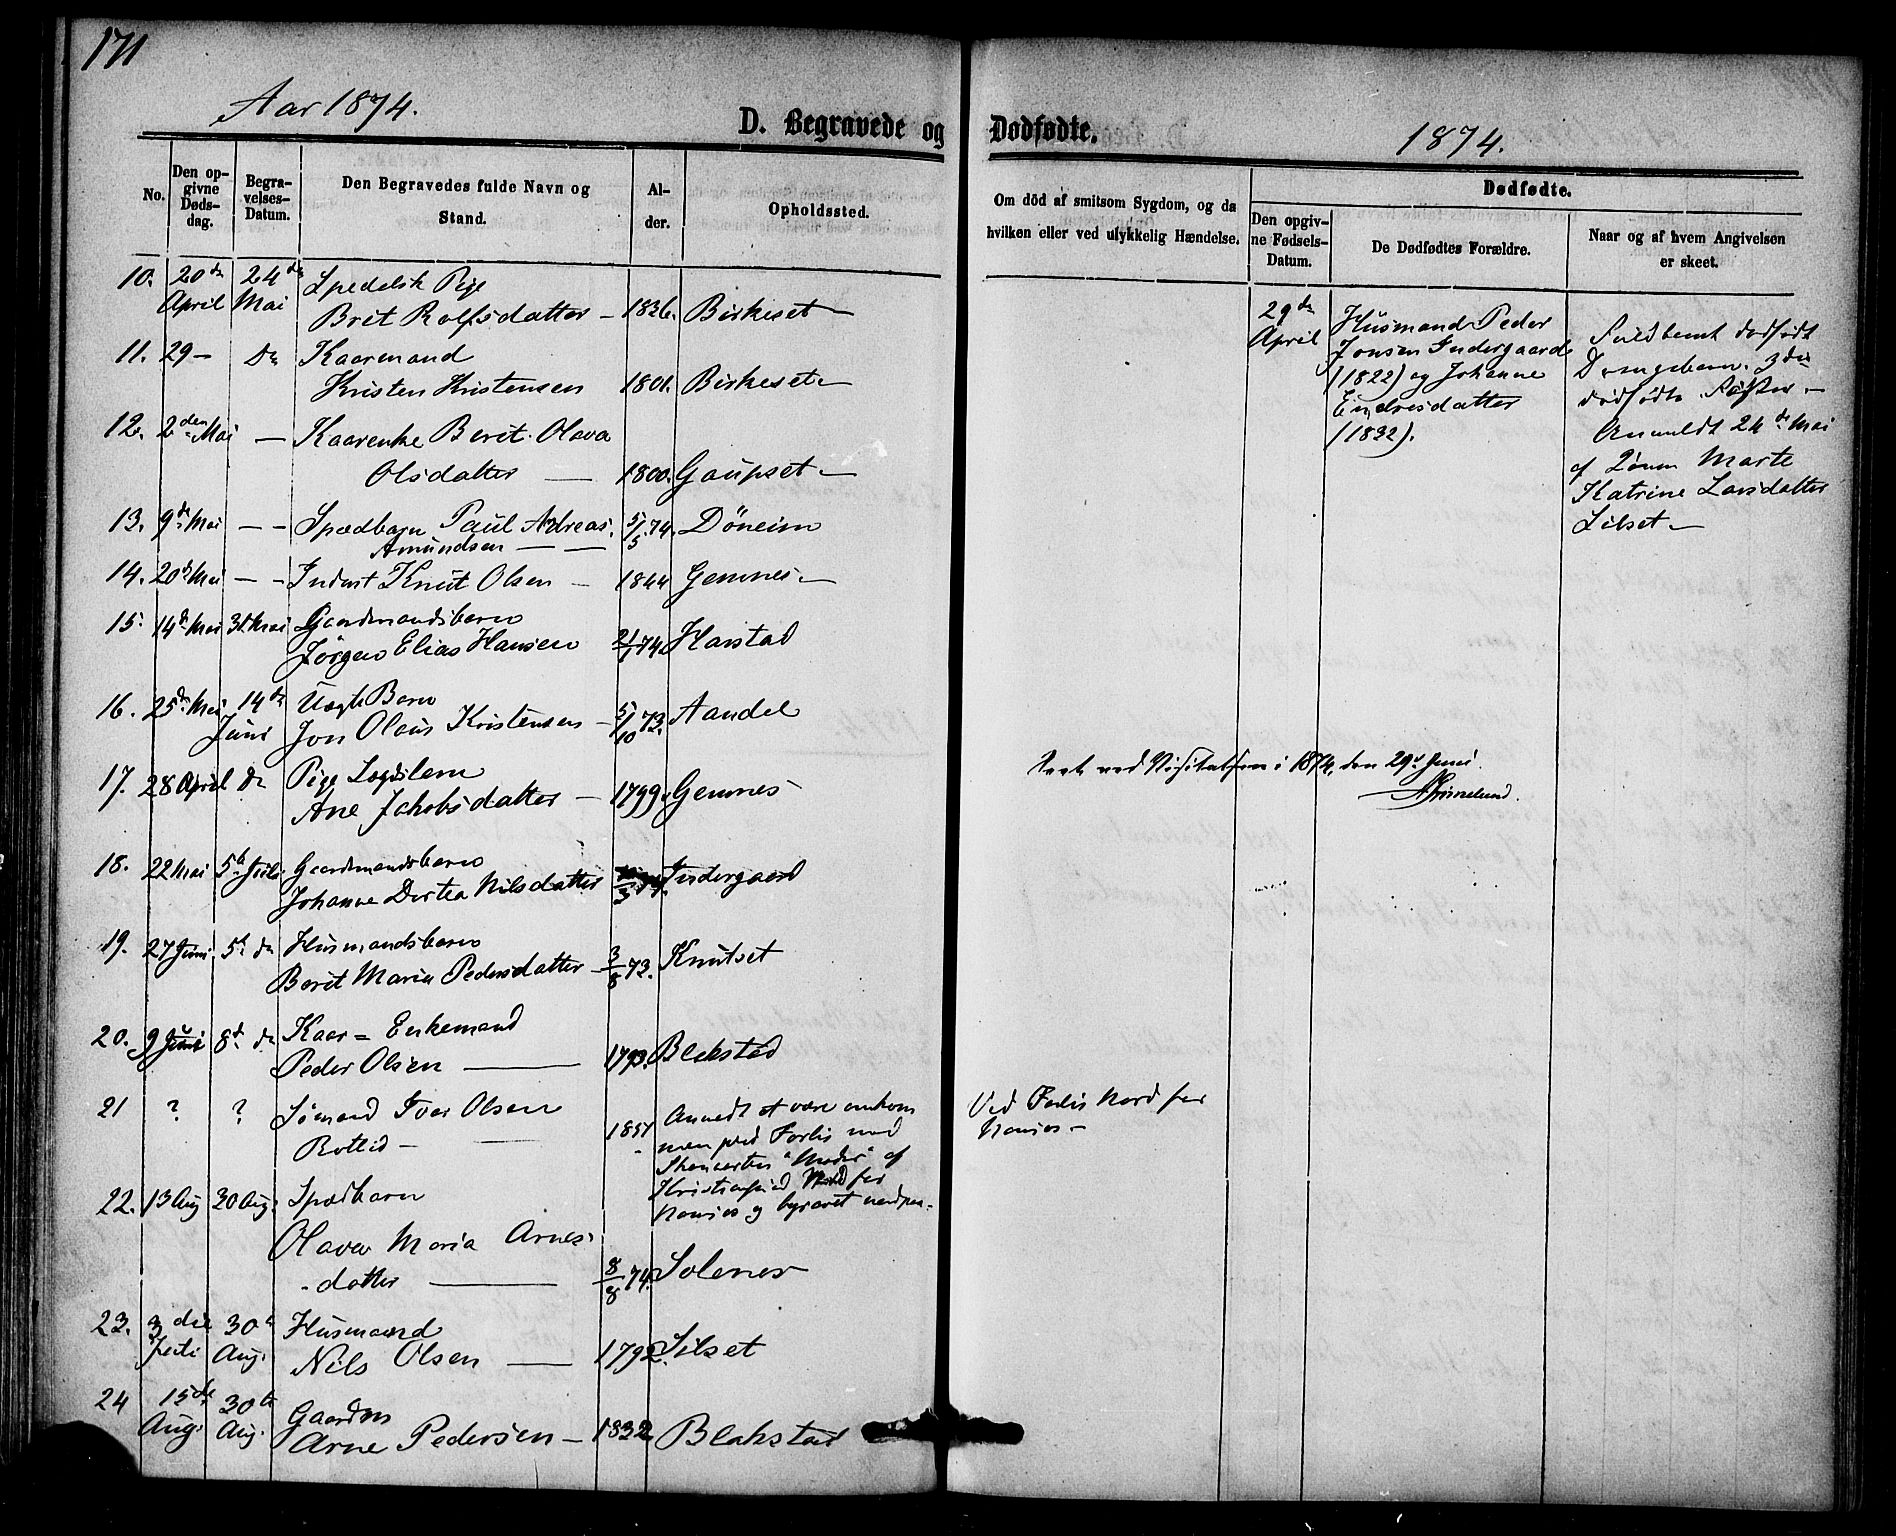 171
Aar 1874.
D. Begravede og Dødfødte.
1874.
No.
Den opgivne Dødsdag.
Begravelses-Datum.
Den Begravedes fulde Navn og Stand.
Alder.
Opholdssted.
Om död af smitsom Sygdom, og da hvilken eller ved ulykkelig Hændelse.
Dødfødte.
Den opgivne Fødsels-Datum.
De Dødfødtes Forældre.
Naar og af hvem Angivelsen er skeet.
10. 20de April 24de Mai Spedalsk Pige
Brit Rolfsdatter – 1826. Birkeset –
11. 29 – Do Kaarmand
Kristen Kristensen 1801. Birkeset –
12. 2den Mai – Kaarenke Berit Olava
Olsdatter – 1800. Gaupset –
13. 9de Mai – – Spædbarn Paul Andreas
Amundsen – – 5/5 74. Döneim
14. 20de Mai – – Inderst Knut Olsen – 1844 Gemnes –
15. 14de Mai 31 Mai Gaardmandsbarn
Jörgen Elias Hansen 21/1 74. Harstad
16. 25de Mai 14de Juni Uægte Barn
Jon Olaus Kristensen – 5/10 73. Aandal
17. 28 April do Pige Lægdslem
Ane Jakobsdatter – 1799. Gemnes
18. 22 Mai 5te Juli Gaardmandsbarn
Johanne Dortea Nilsdatter /3 74. Indergaard
19. 27 Juni 5te do Husmandsbarn
Berit Maria Pedersdatter – 3/8 73. Knutset
20. 9 Juni 8de do Kaar = Enkemand
Peder Olsen – 1793. Blakstad
21 ? ? Sömand Iver Olsen
Rottid – 1851 Anmeldt at være omkommen ved Forlis med
"Moder" af
Kristiansund Nord for
og begravet
Ved Forlis Nord for
22. 13 Aug 30 Aug. Spædbarn
Olava Maria Arnesdatter – 8/8 74. Solenes
23. 3die Juli 30te Aug. Husmand
Nils Olsen – 1792. Silset
24 15de Aug. 30te Aug. Gaardm
Arne Pedersen – 1832 Blakstad
29de April
Husmand Peder
Jonsen Indergaard
(1822) og Johanne
Endresdatter
(1832).
Fuldbamt dødfødt
Drengebarn. 3die
dødfødte Foster –
Anmeldt 24de Mai
af Konen Marte
Katrine Larsdatter
Silset –
Seet ved Visitatsen i 1874, den 29de Juni
Grimelund.